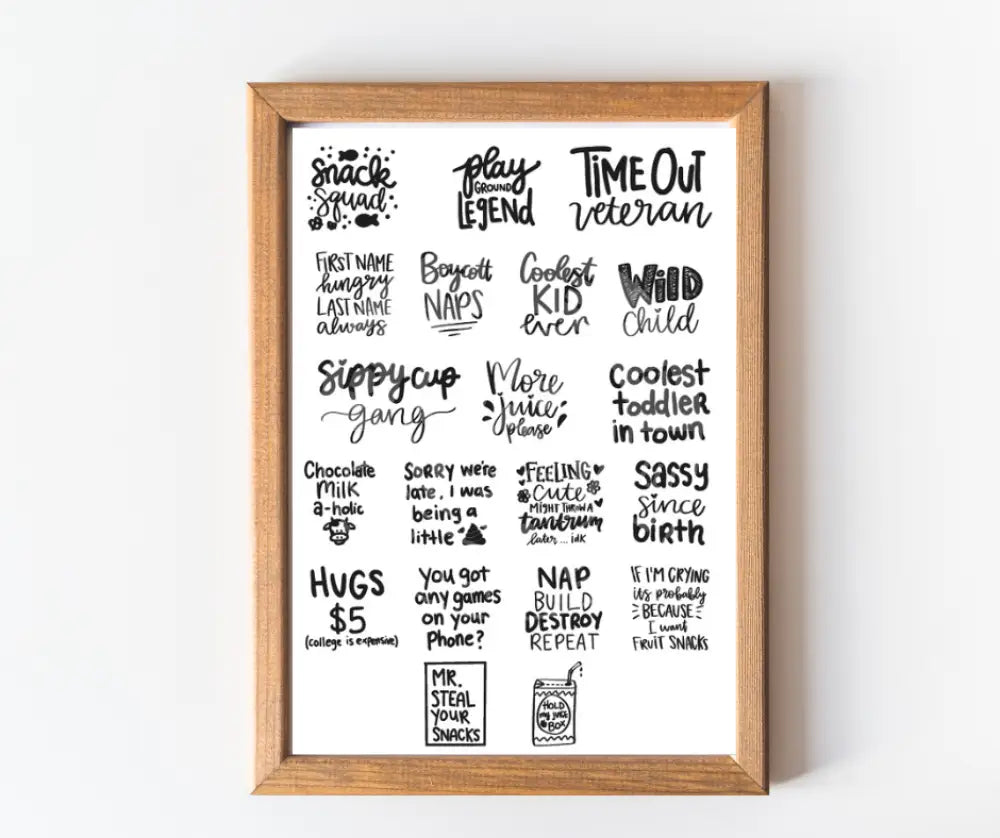 Snack
Squad
play
GROUND
LEGENd
TIME OUT
veteran
FIRST NAME
hungry
LAST NAME
always
Boycott
NAPS
Coolest
KID
ever
WilD
child
Sippy cup
gang
More
juice
please
Coolest
toddleR
in town
Chocolate
Milk
a-holic
SoRRY we're
late, I was
being a
little
FEELING
Cute
MIGHT THROW A
tantrum
later... idk
Sassy
since
birth
HUGS
$5
(college is expensive)
you got
any games
on your
Phone?
NAP
BUILD
DESTROY
REPEAT
IF I'M CRYING
its probably
BECAUSE
I want
FRUIT SNACKS
MR.
STEAL
YOUR
SNACKS
HOLD
my JUICE
BOX